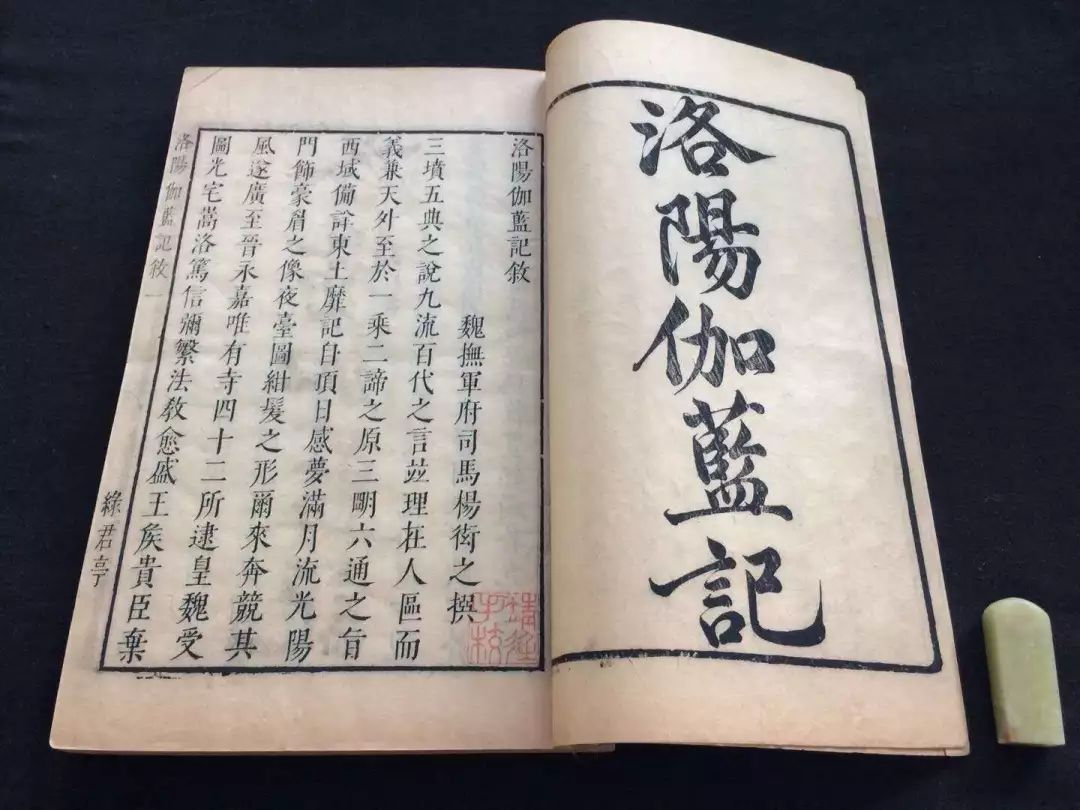 洛陽伽藍記
洛陽伽藍記敘
魏撫軍府司馬楊衒之撰
三墳五典之說九流百代之言並理在人區而
義兼天外至於一乘二諦之原三明六通之旨
西域備詳東土靡記自頂日感夢滿月流光陽
門飾豪眉之像夜臺圖紺髮之形爾來奔競其
風遂廣至晉永嘉唯有寺四十二所逮皇魏受
圖光宅嵩洛篤信彌繁法教愈盛王矦貴臣棄
洛陽伽藍記敘 一
綠君亭